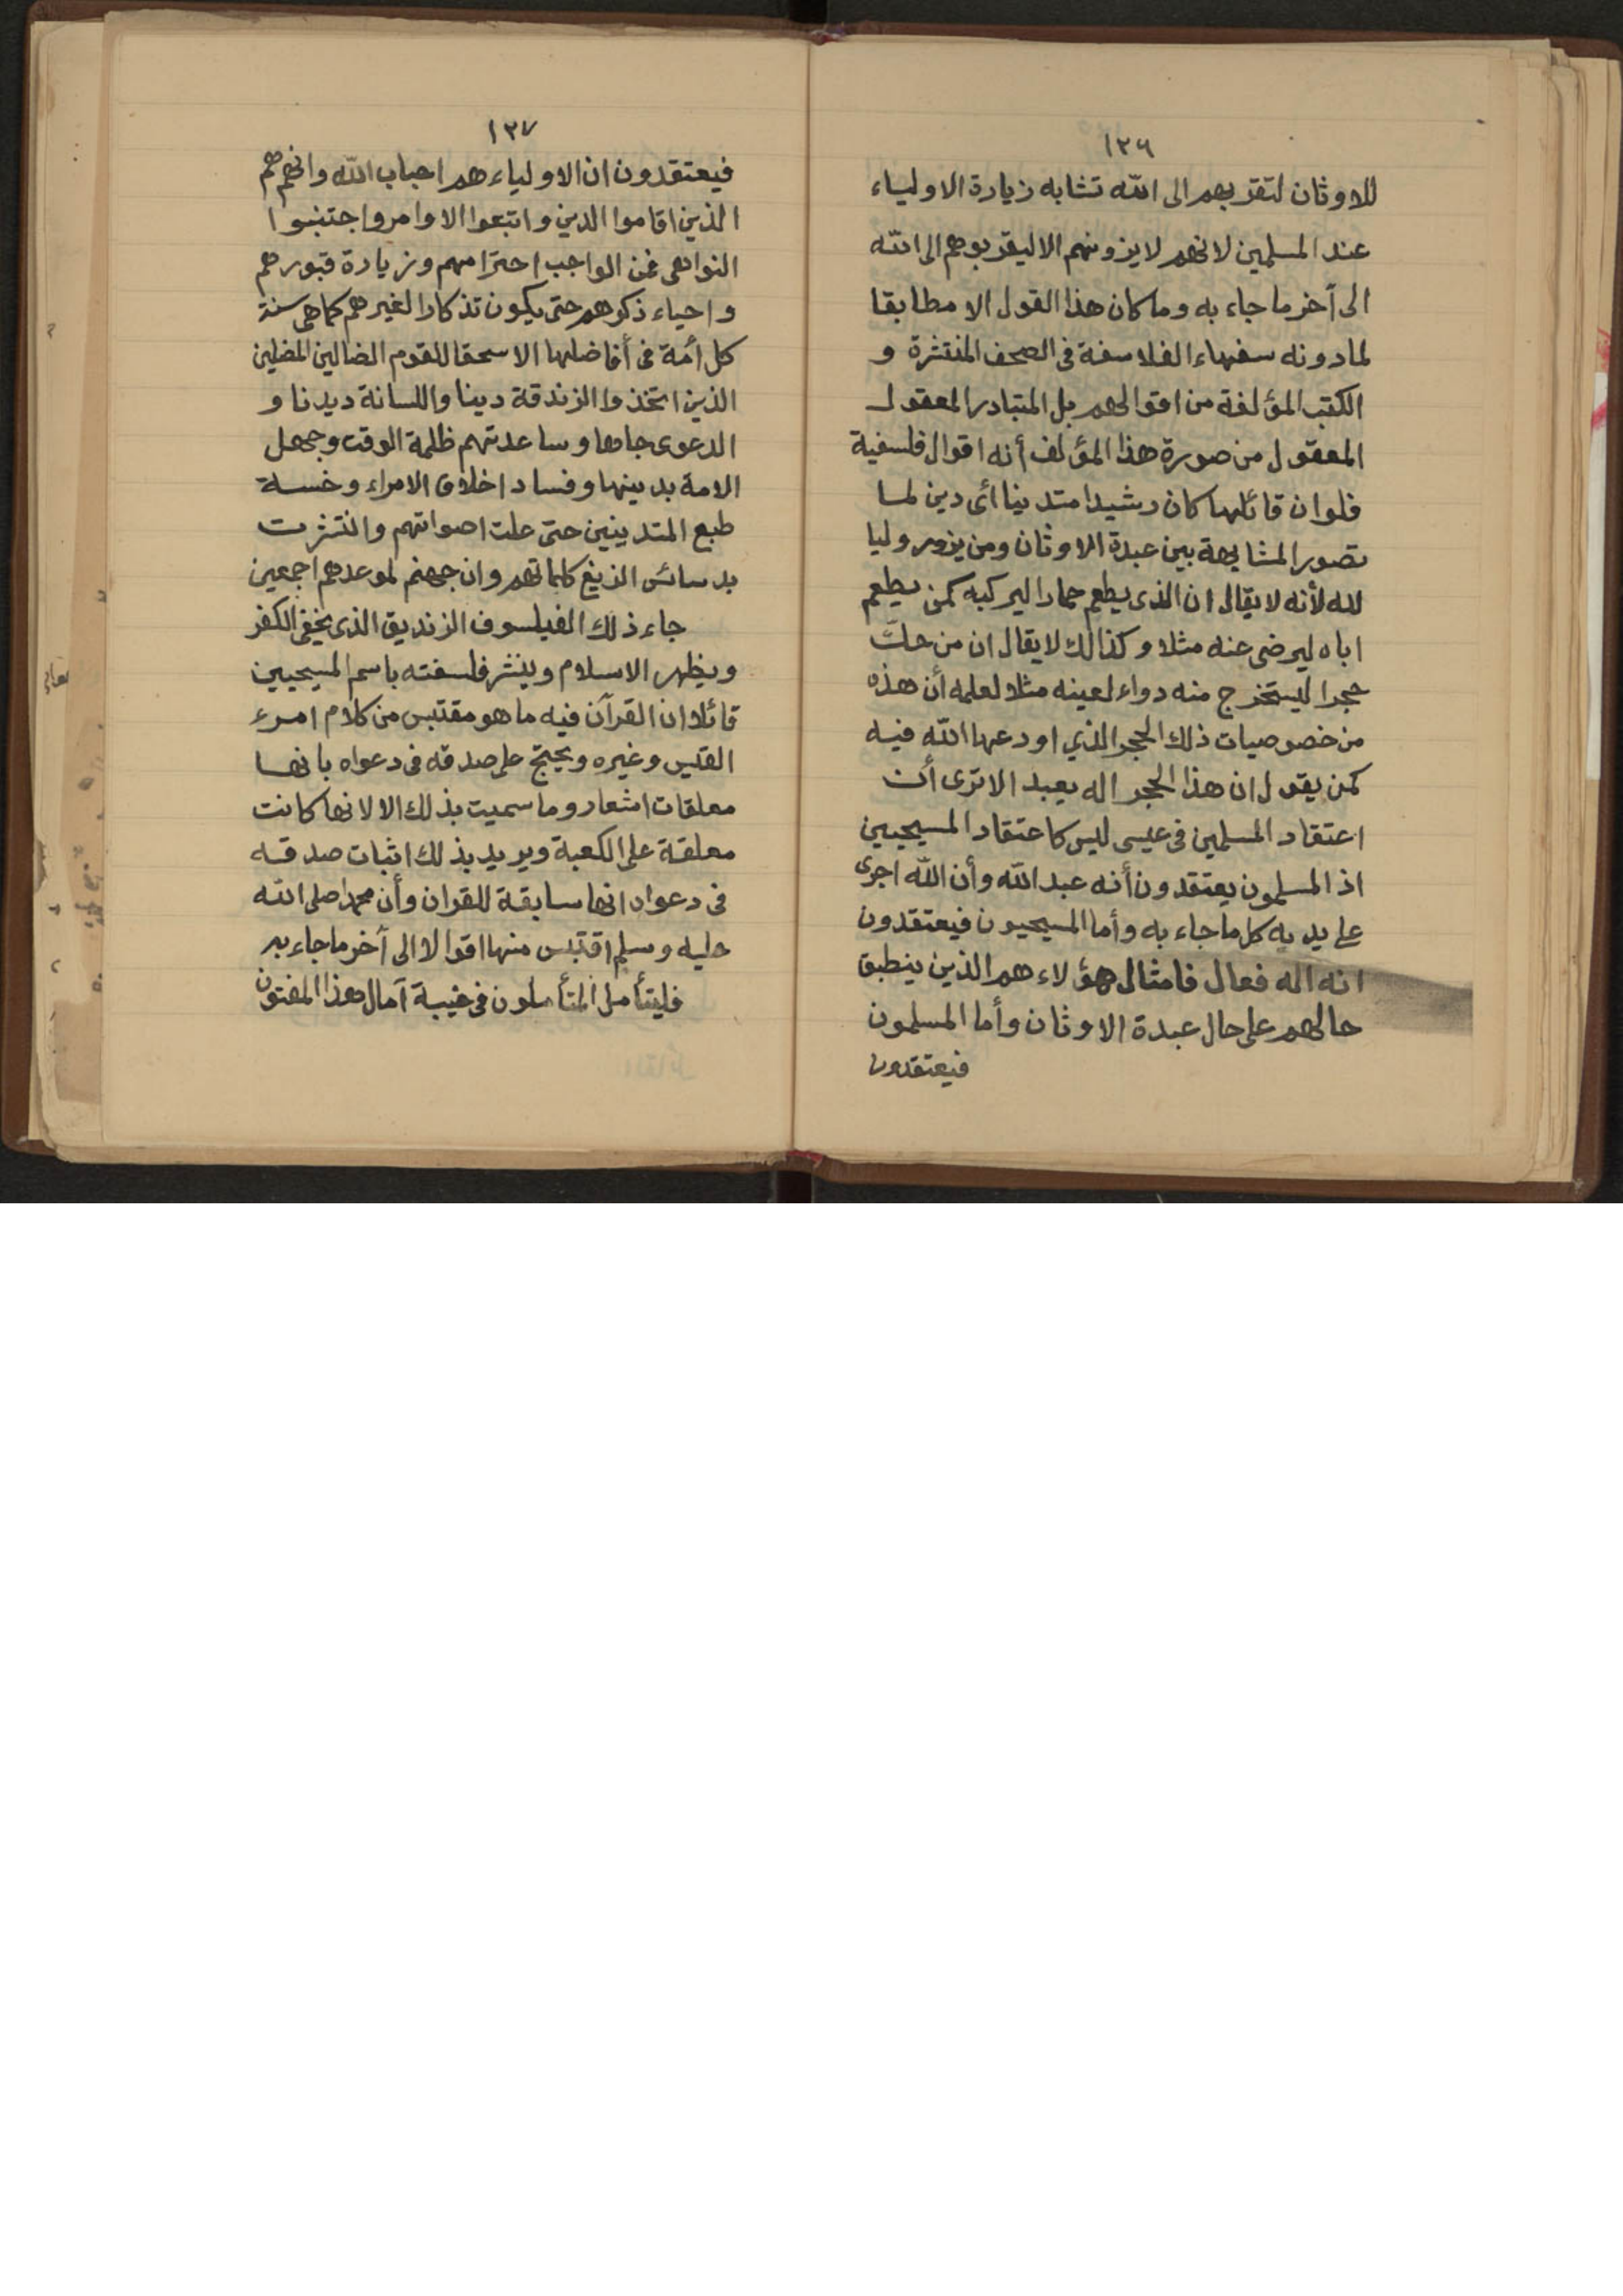 ١٢٦
للاوثان لتقربهم الى الله تشابه زيارة الاولياء
عند المسلمين لانهم لا يزونهم الا ليقربوهم الى الله
الى آخر ما جاء به وما كان هذا القول الا مطابقا
لما دونه سفهاء الفلاسفة فى الصحف المنتثرة و
الكتب المؤلفة من اقوالهم بل المتبادر المعقول
المعقول من صورة هذا المؤلف أنه اقوال فلسفية
فلو ان قائلها كان رشيدا متدينا أى دين لما
تصور المشابهة بين عبدة الاوثان ومن يزور وليا
لله لأنه لا يقال ان الذى يطعم حمارا ليركبه كمن يطعم
اباه ليرضى عنه مثلا وكذالك لا يقال ان من حكّ
حجرا ليستخرج منه دواء لعينه مثلا لعلمه أن هذه
من خصوصيات ذلك الحجر الذي اودعها الله فيه
كمن يقول ان هذا الحجر اله يعبد الا ترى أن
اعتقاد المسلمين فى عيسى ليس كاعتقاد المسيحيين
اذ المسلمون يعتقدون أنه عبد الله وأن الله اجرى
على يديه كل ما جاء به وأما المسيحيون فيعتقدون
انه اله فعال فامثال هؤلاء هم الذين ينطبق
حالهم على حال عبدة الاوثان وأما المسلمون
فيعتقدون
١٢٧
فيعتقدون ان الاولياء هم احباب الله وانهم هم
الذين اقاموا الدين واتبعوا الاوامر واجتنبوا
النواهى فمن الواجب احترامهم وزيارة قبورهم
واحياء ذكرهم حتى يكون تذكارا لغيرهم كما هى سنة
كل أمة فى أفاضلها الا سحقا للقوم الضالين المضلين
الذين اتخذوا الزندقة دينا واللسانة ديدنا و
الدعوى جاها وساعدتهم ظلمة الوقت وجهل
الامة بدينها وفساد اخلاق الامراء وخسة
طبع المتدينين حتى علت اصواتهم وانتثرت
بدسائس الزيغ كلماتهم وان جهنم لموعدهم اجمعين
جاء ذلك الفيلسوف الزنديق الذى يخفى الكفر
ويظهر الاسلام وينشر فلسفته باسم المسيحيين
قائلا ان القرآن فيه ما هو مقتبس من كلام امرء
القيس وغيره ويحتج على صدقه فى دعواه بانها
معلقات اشعار وما سميت بذلك الا لانها كانت
معلقة على الكعبة ويريد بذلك اثبات صدقه
فى دعواه انها سابقة للقران وأن محمدا صلى الله
عليه وسلم اقتبس منها اقوالا الى آخر ما جاء به
فليتأمل المتأملون فى خيبة آمال هذا المفتون